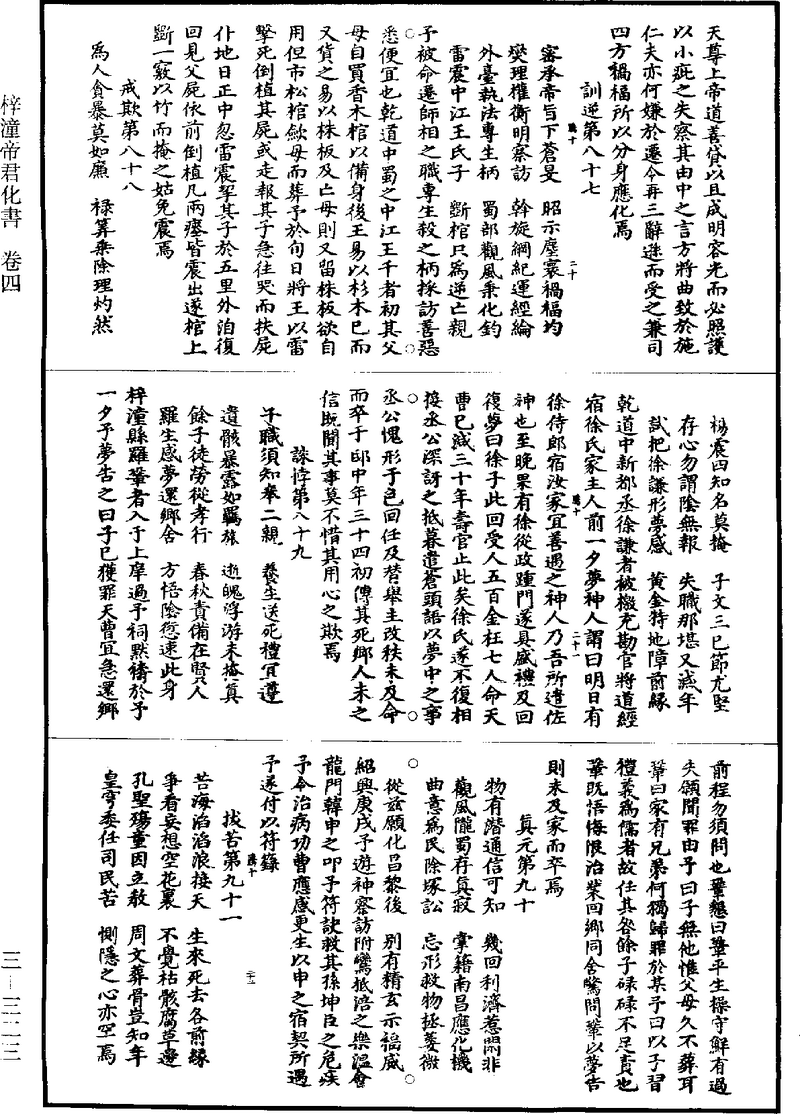 天尊上帝道善貸以且成明容光而必照護
以小疵之失察其由中之言方將曲致於施
仁夫亦何嫌於遷今再三辭遜而受之兼司
四方禍福所以分身應化焉
訓逆第八十七
騰十
二十
密承帝旨下蒼旻　昭示塵寰禍福均
爕理權衡明察訪　斡旋綱紀運經綸
外臺執法專生柄　蜀部觀風秉化鈞
雷震中江王氏子　斷棺只為逆亡親
予被命遷師相之職專生殺之柄採訪善惡
悉便宜也乾道中蜀之中江王千者初其父
母自買香木棺以備身後王易以杉木已而
又貨之易以株板及亡母則又留株板欲自
用但市松棺斂母而葬予於旬日將王以雷
擊死倒植其屍或走報其子急往哭而扶屍
仆地日正中忽雷震挈其子於五里外洎復
回見父屍依前倒植凡兩瘞皆震出遂棺上
斷一竅以竹而掩之姑免震焉
戒欺第八十八
為人貪暴莫如廉　祿筭乗除理灼然
楊震四知名莫掩　子文三已節尤堅
存心勿謂陰無報　失職那堪又減年
試把徐謙形夢感　黄金特地障前緣
乾道中新都丞徐謙者被檄充勘官將道經
宿徐氏家主人前一夕夢神人謂曰明日有
騰十
二十一
徐侍郎宿汝家宜善遇之神人乃吾所遣佐
神也至晚果有徐從政踵門遂具盛禮及回
復夢曰徐子此回受人五百金枉七人命天
曹已減三十年壽官止此矣徐氏遂不復相
接丞公深訝之抵暮遣蒼頭語以夢中之事
丞公愧形于色回任及替舉主改秩未及命
而卒于邸中年三十四初傳其死鄉人未之
信既聞其事莫不惜其用心之欺焉
誅悖第八十九
子職須知奉二親　養生送死禮宜遵
遺骸暴露如羈旅　逝魄浮游未掩真
餘子徒勞從孝行　春秋責備在賢人
羅生感夢還鄉舍　方悟陰愆速此身
梓潼縣羅鞏者入于上庠過予祠黙禱於予
一夕予夢告之曰子已獲罪天曹宜急還鄉
前程勿須問也鞏懇曰鞏平生操守鮮有過
失願聞罪由予曰子無他惟父母久不葬耳
鞏曰家有兄弟何獨歸罪於某予曰以子習
禮義為儒者故任其咎餘子碌碌不足責也
鞏既悟悔恨治業回鄉同舍驚問鞏以夢告
則未及家而卒焉
真元第九十
物有潛通信可知　幾回利濟惹閑非
觀風隴蜀存真寂　掌籍南昌應化機
曲意為民除塚訟　忘形救物拯蔓微
從兹願化昌黎後　别有精玄示福威
紹興庚戌予遊神察訪附鸞抵涪之樂溫會
龍門韓申之叩予符訣救其孫坤臣之危疾
予令治病功曹應感更生以申之宿契所遇
予遂付以符籙
騰十
二十二
拔苦第九十一
苦海滔滔浪接天　生來死去各前緣
爭看妄想空花裏　不覺枯骸腐草邊
孔聖殤童因立教　周文葬骨豈知年
皇穹委任司民苦　惻隱之心亦空焉
梓潼帝君化書　卷四
三—三二三